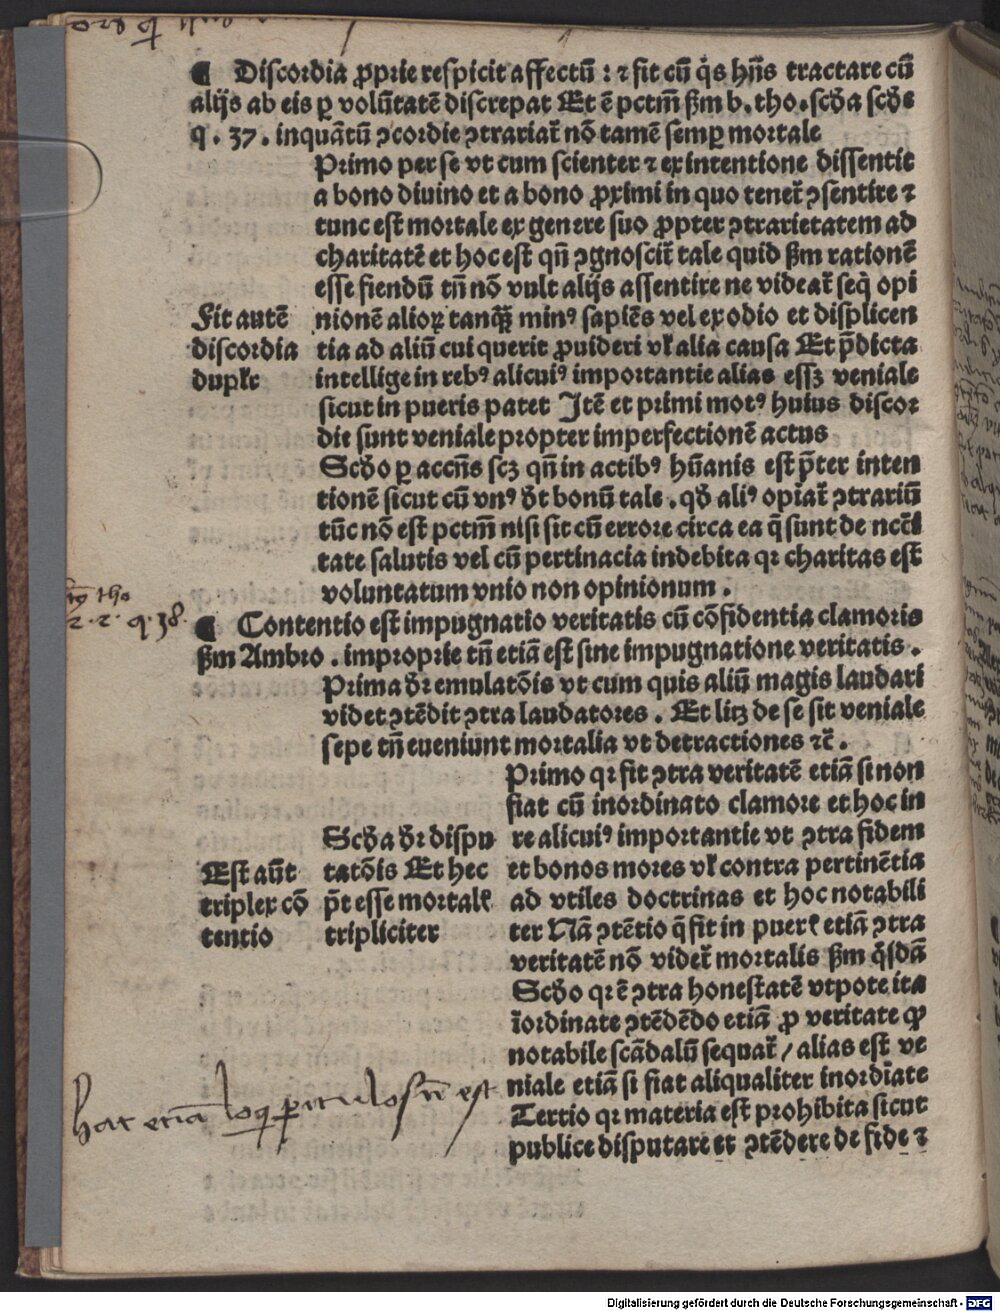 ¶ Discordia ꝓprie respicit affectū : ⁊ fit cū q̇s hn̄s tractare cū
alijs ab eis ꝑ volūtatē discrepat Et ē pctm̄ ẜm b. tho. scḋa scḋe
q. 37. inquātū ꝯcordie ꝯtrariat̉ nō tamē semꝑ mortale
Primo per se vt cum scienter ⁊ ex intentione dissentit
a bono diuino et a bono ꝓximi in quo tenet̉ ꝯsentire ⁊
tunc est mortale ex genere suo ꝓpter ꝯtrarietatem ad
charitatē et hoc est qn̄ ꝯgnoscit̉ tale quid ẜm rationē
esse fiendū tn̄ nō vult alijs assentire ne videat̉ seq̇ opi
Fit autē
discordia
dupl̉r
nionē alioꝝ tanq̄ꝫ minꝰ sapiēs vel ex odio et displicen
tia ad aliū cui querit ꝓuideri vl̉ alia causa Et p̄dicta
intellige in rebꝰ alicuiꝰ importantie alias essꝫ veniale
sicut in pueris patet Itē et primi motꝰ huius discor
die sunt veniale propter imperfectionē actus
Scḋo ꝑ accn̄s scꝫ qn̄ in actibꝰ hūanis est p̄ter inten
tionē sicut cū vnꝰ ḋt bonū tale. qḋ aliꝰ opiat̉ ꝯtrariū
tūc nō est pctm̄ nisi sit cū errore circa ea q̄ sunt de ncc̄i
tate salutis vel cū pertinacia indebita qꝛ charitas est
voluntatum vnio non opinionum.
tho
2. 2. q. 38.
¶ Contentio est impugnatio veritatis cū cōfidentia clamoris
ẜm Ambro. improprie tn̄ etiā est sine impugnatione veritatis.
Prima ḋr emulatōis vt cum quis aliū magis laudari
videt ꝯtēdit ꝯtra laudatores. Et litꝫ de se sit veniale
sepe tn̄ eueniunt mortalia vt detractiones ⁊c̄.
Est aūt
triplex cō
tentio
Scḋa ḋr dispu
tatōis Et hec
p̄t esse mortale
tripliciter
Primo qꝛ fit ꝯtra veritatē etiā si non
fiat cū inordinato clamore et hoc in
re alicuiꝰ importantie vt ꝯtra fidem
et bonos mores vl̉ contra pertinētia
ad vtiles doctrinas et hoc notabili
ter Nā ꝯtētio q̄ fit in pueris etiā ꝯtra
veritatē nō videt̉ mortalis ẜm q̇sdā
Scḋo qꝛ ē ꝯtra honestatē vtpote ita
īordinate ꝯtēdēdo etiā ꝓ veritate ꝙ
notabile scādalū sequat̉ / alias est ve
niale etiā si fiat aliqualiter inordīate
Tertio qꝛ materia est prohibita sicut
publice disputare et ꝯtēdere de fide ⁊
etiā loqͥ est
Digitalisierung gefördert durch die Deutsche Forschungsgemeinschaft - DFG